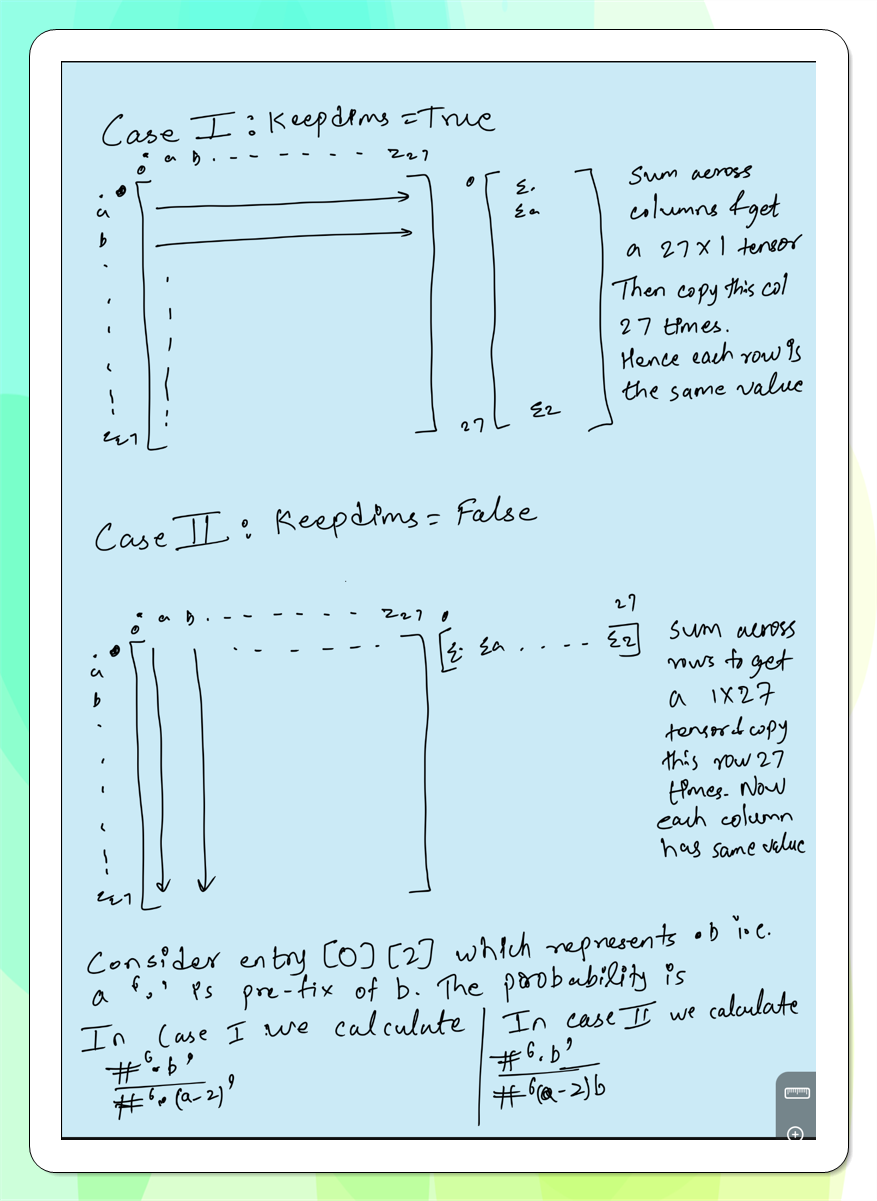 Case I : Keepdims = True
. a b . - - - - - - - z 27
0
. 0
a
b
z 27
0
Σ.
Σa
Σz
27
Sum across
columns & get
a 27 x 1 tensor
Then copy this col
27 times.
Hence each row is
the same value
Case II : Keepdims = False
. a b . - - - - - - - z 27
0
. 0
a
b
z 27
0
27
Σ. Σa . . . . - - Σz
Sum across
rows to get
a 1X27
tensor & copy
this row 27
times. Now
each column
has same value
Consider entry [0][2] which represents .b i.e.
a '.' is pre-fix of b. The probability is
In Case I we calculate
#'.b'
#'.(a-z)'
In case II we calculate
#'.b'
#'(a-z)b